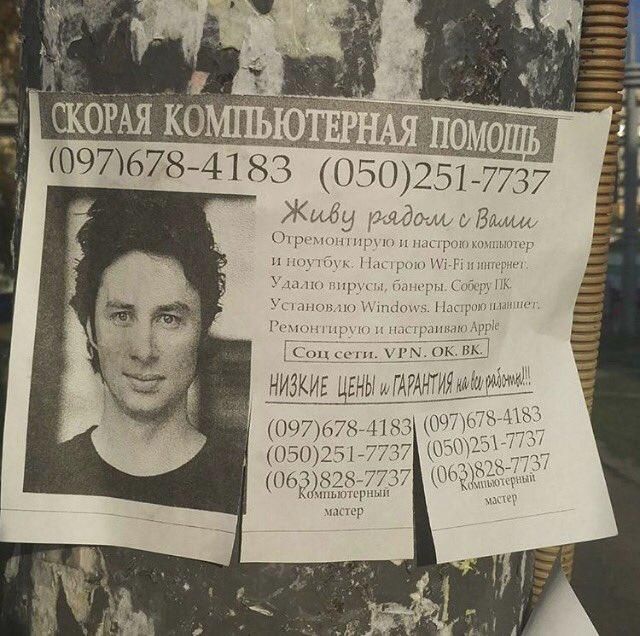 СКОРАЯ КОМПЬЮТЕРНАЯ ПОМОЩЬ
(097)678-4183 (050)251-7737
Живу рядом с Вами
Отремонтирую и настрою компьютер
и ноутбук. Настрою Wi-Fi и интернет.
Удалю вирусы, банеры. Соберу ПК.
Установлю Windows. Настрою планшет.
Ремонтирую и настраиваю Apple
Соц сети. VPN. ОК. ВК.
НИЗКИЕ ЦЕНЫ и ГАРАНТИЯ на все работы!!!
(097)678-4183
(050)251-7737
(063)828-7737
Компьютерный
мастер
(097)678-4183
(050)251-7737
(063)828-7737
Компьютерный
мастер